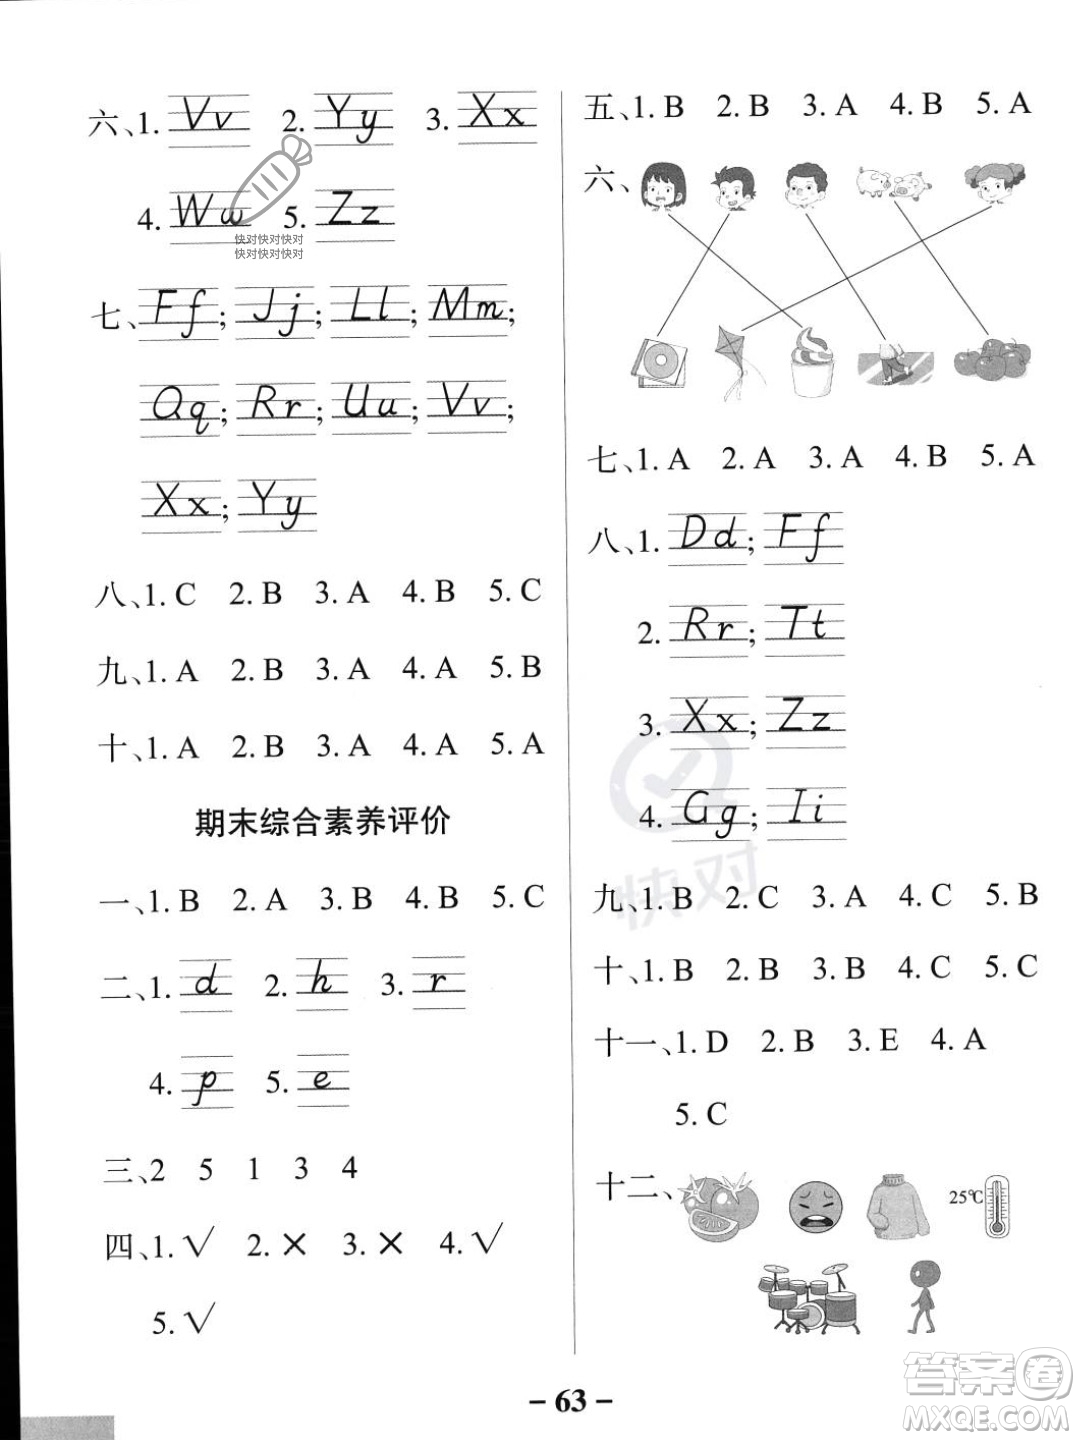 六、1. Vv 2. Yy 3. Xx
4. Ww 5. Zz
快对快对快对
快对快对快对
七、Ff; Jj; Ll; Mm;
Qq; Rr; Uu; Vv;
Xx; Yy
八、1. C 2. B 3. A 4. B 5. C
九、1. A 2. B 3. A 4. A 5. B
十、1. A 2. B 3. A 4. A 5. A
期末综合素养评价
一、1. B 2. A 3. B 4. B 5. C
二、1. d 2. h 3. r
4. p 5. e
三、2 5 1 3 4
四、1. √ 2. × 3. × 4. √
5. √
五、1. B 2. B 3. A 4. B 5. A
六、
七、1. A 2. A 3. A 4. B 5. A
八、1. Dd; Ff
2. Rr; Tt
3. Xx; Zz
4. Gg; Ii
快对
九、1. B 2. C 3. A 4. C 5. B
十、1. B 2. B 3. A 4. C 5. C
十一、1. D 2. B 3. E 4. A
5. C
十二、
25℃
- 63 -
答案圈
MXQE.COM